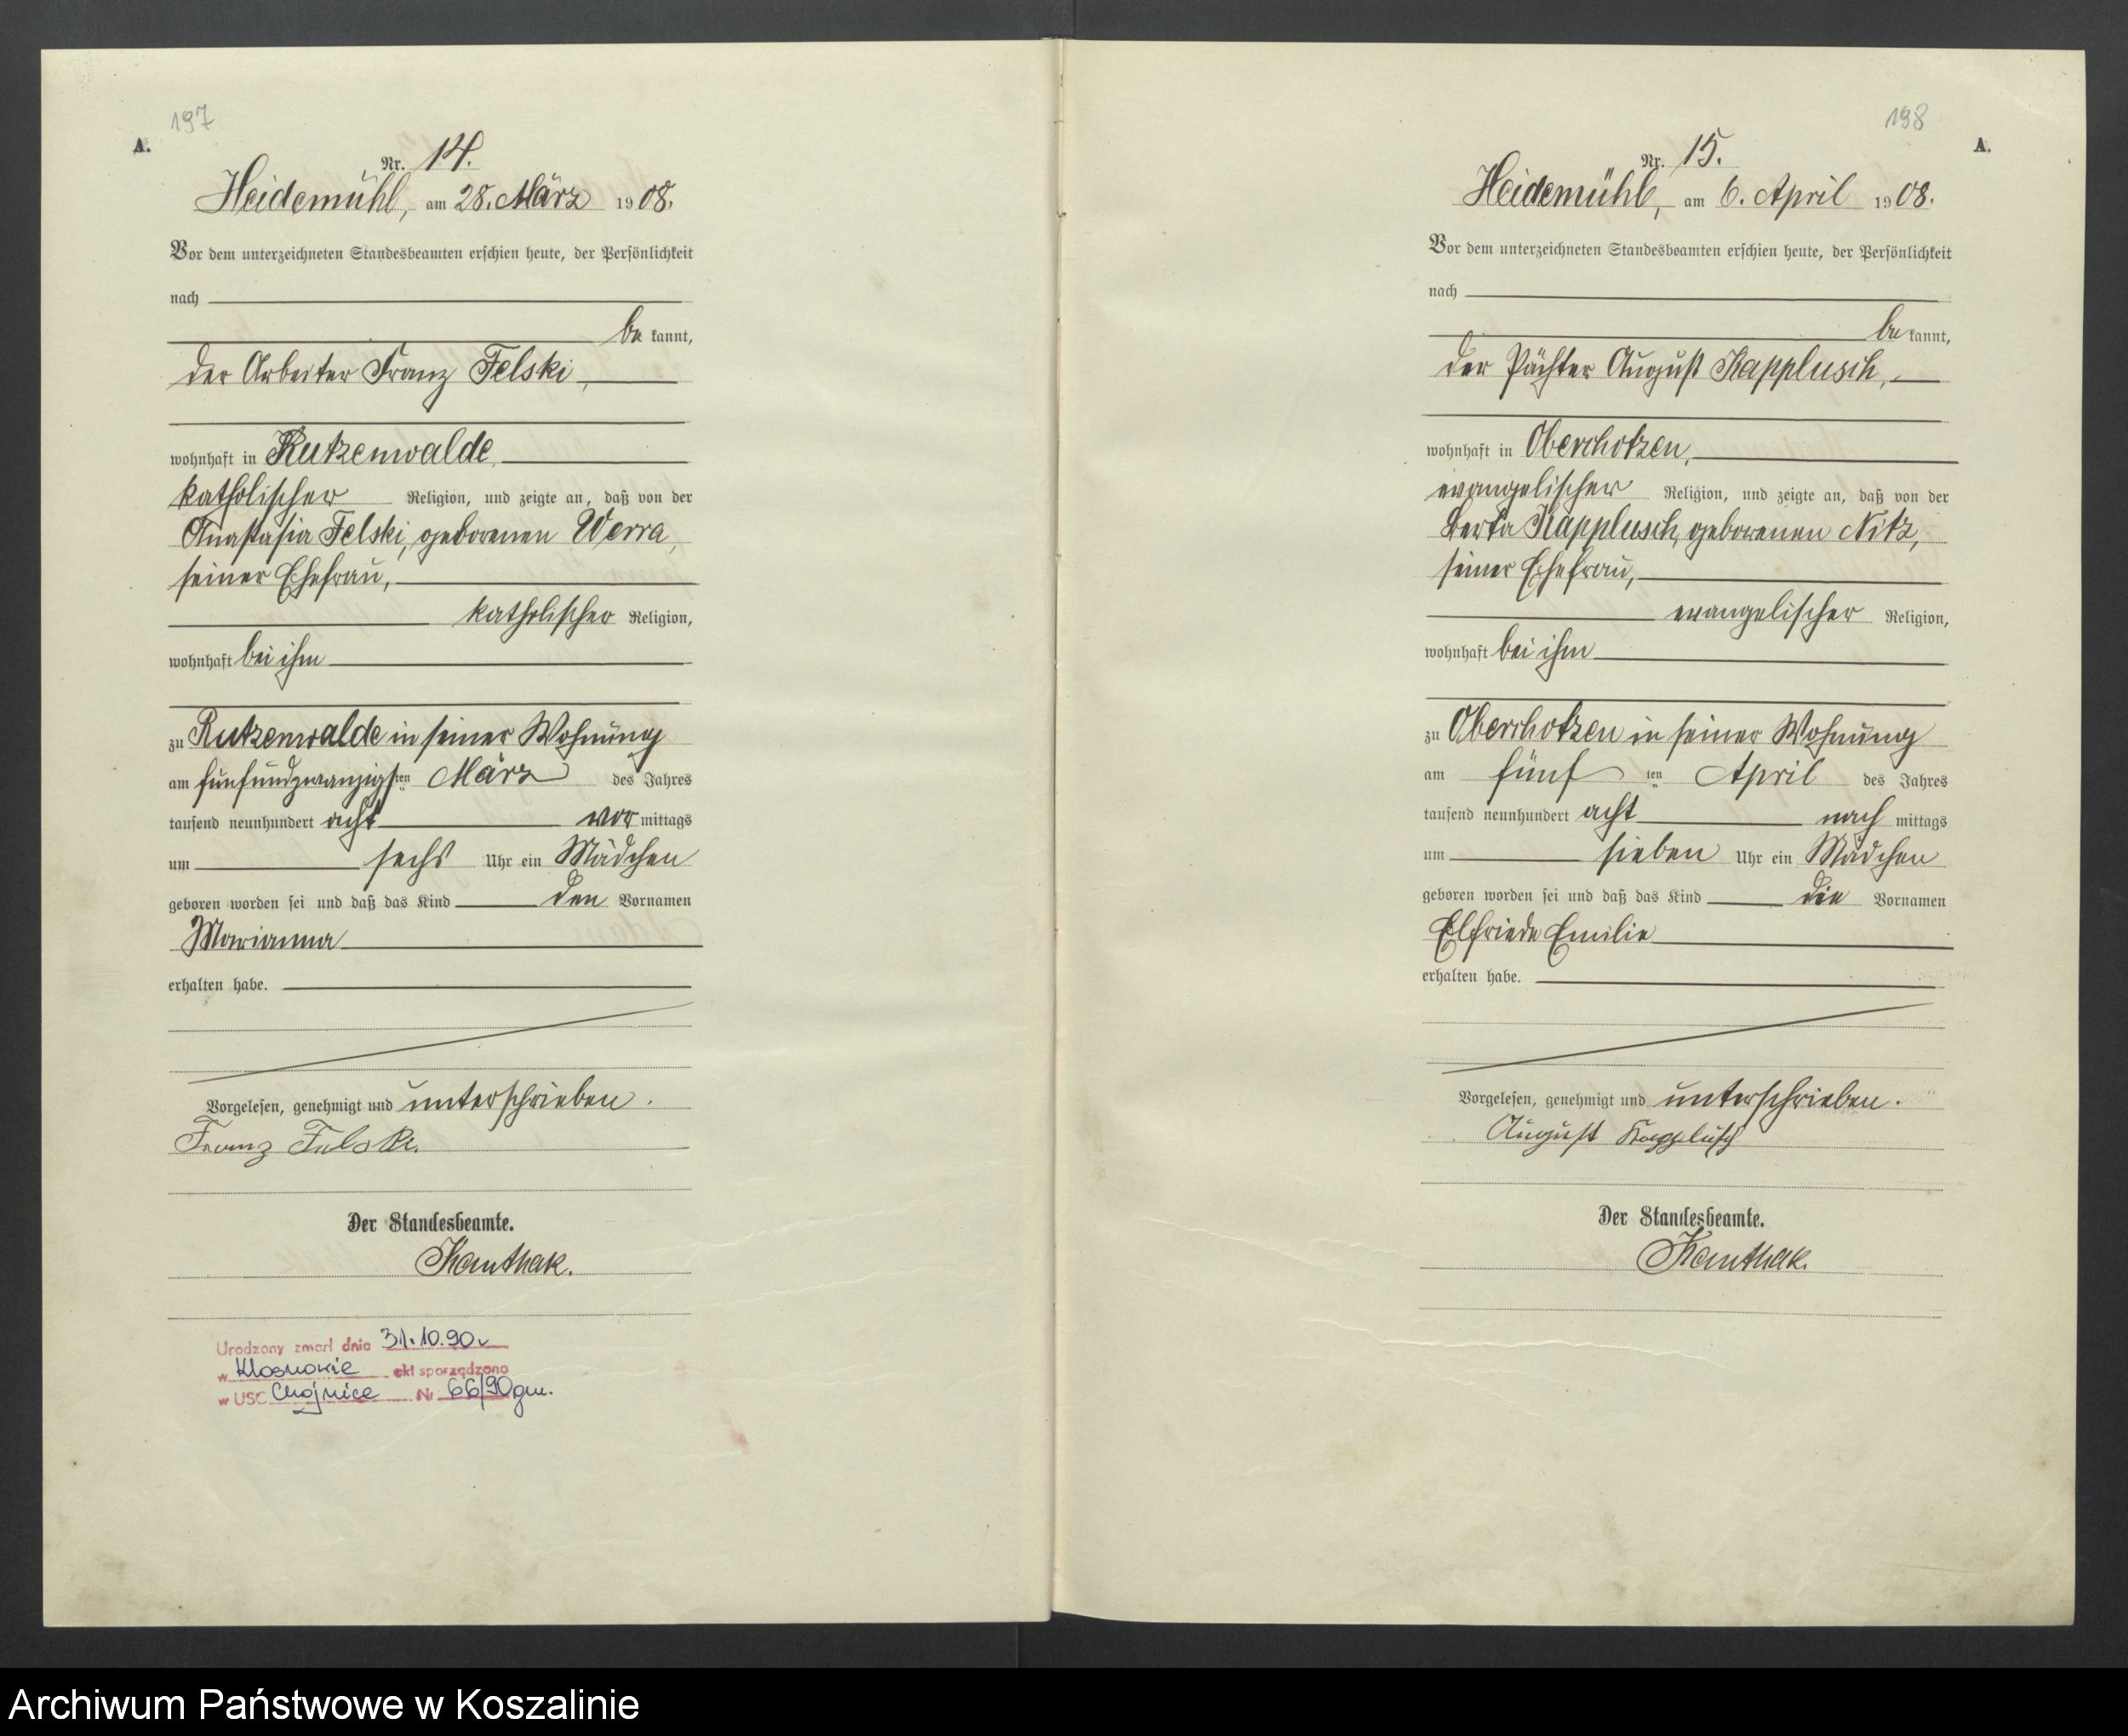 197
A.
Nr. 14.
Heidemühl, am 28. März 1908.
Vor dem unterzeichneten Standesbeamten erschien heute, der Persönlichkeit
nach
be kannt,
der Arbeiter Franz Felski,
wohnhaft in Rutzenwalde
katholischer Religion, und zeigte an, daß von der
Anastasia Felski, geborenen Werra,
seiner Ehefrau,
katholischer Religion,
wohnhaft bei ihm
zu Rutzenwalde in seiner Wohnung
am fünfundzwanzigsten März des Jahres
tausend neunhundert acht vor mittags
um sechs Uhr ein Mädchen
geboren worden sei und daß das Kind den Vornamen
Marianna
erhalten habe.
Vorgelesen, genehmigt und unterschrieben.
Franz Felski.
Der Standesbeamte.
Kanthak.
Urodzony zmarł dnia 31.10.90 r
w Kłosnowie akt sporządzono
w USC Chojnice Nr 66/90 gm.
198
A.
Nr. 15.
Heidemühl, am 6. April 1908.
Vor dem unterzeichneten Standesbeamten erschien heute, der Persönlichkeit
nach
be kannt,
der Pächter August Kapplusch,
wohnhaft in Oberchotzen,
evangelischer Religion, und zeigte an, daß von der
Berta Kapplusch, geborenen Nitz,
seiner Ehefrau,
evangelischer Religion,
wohnhaft bei ihm
zu Oberchotzen in seiner Wohnung
am fünf ten April des Jahres
tausend neunhundert acht nach mittags
um sieben Uhr ein Mädchen
geboren worden sei und daß das Kind die Vornamen
Elfriede Emilie
erhalten habe.
Vorgelesen, genehmigt und unterschrieben.
August Kapplusch
Der Standesbeamte.
Kanthak.
Archiwum Państwowe w Koszalinie